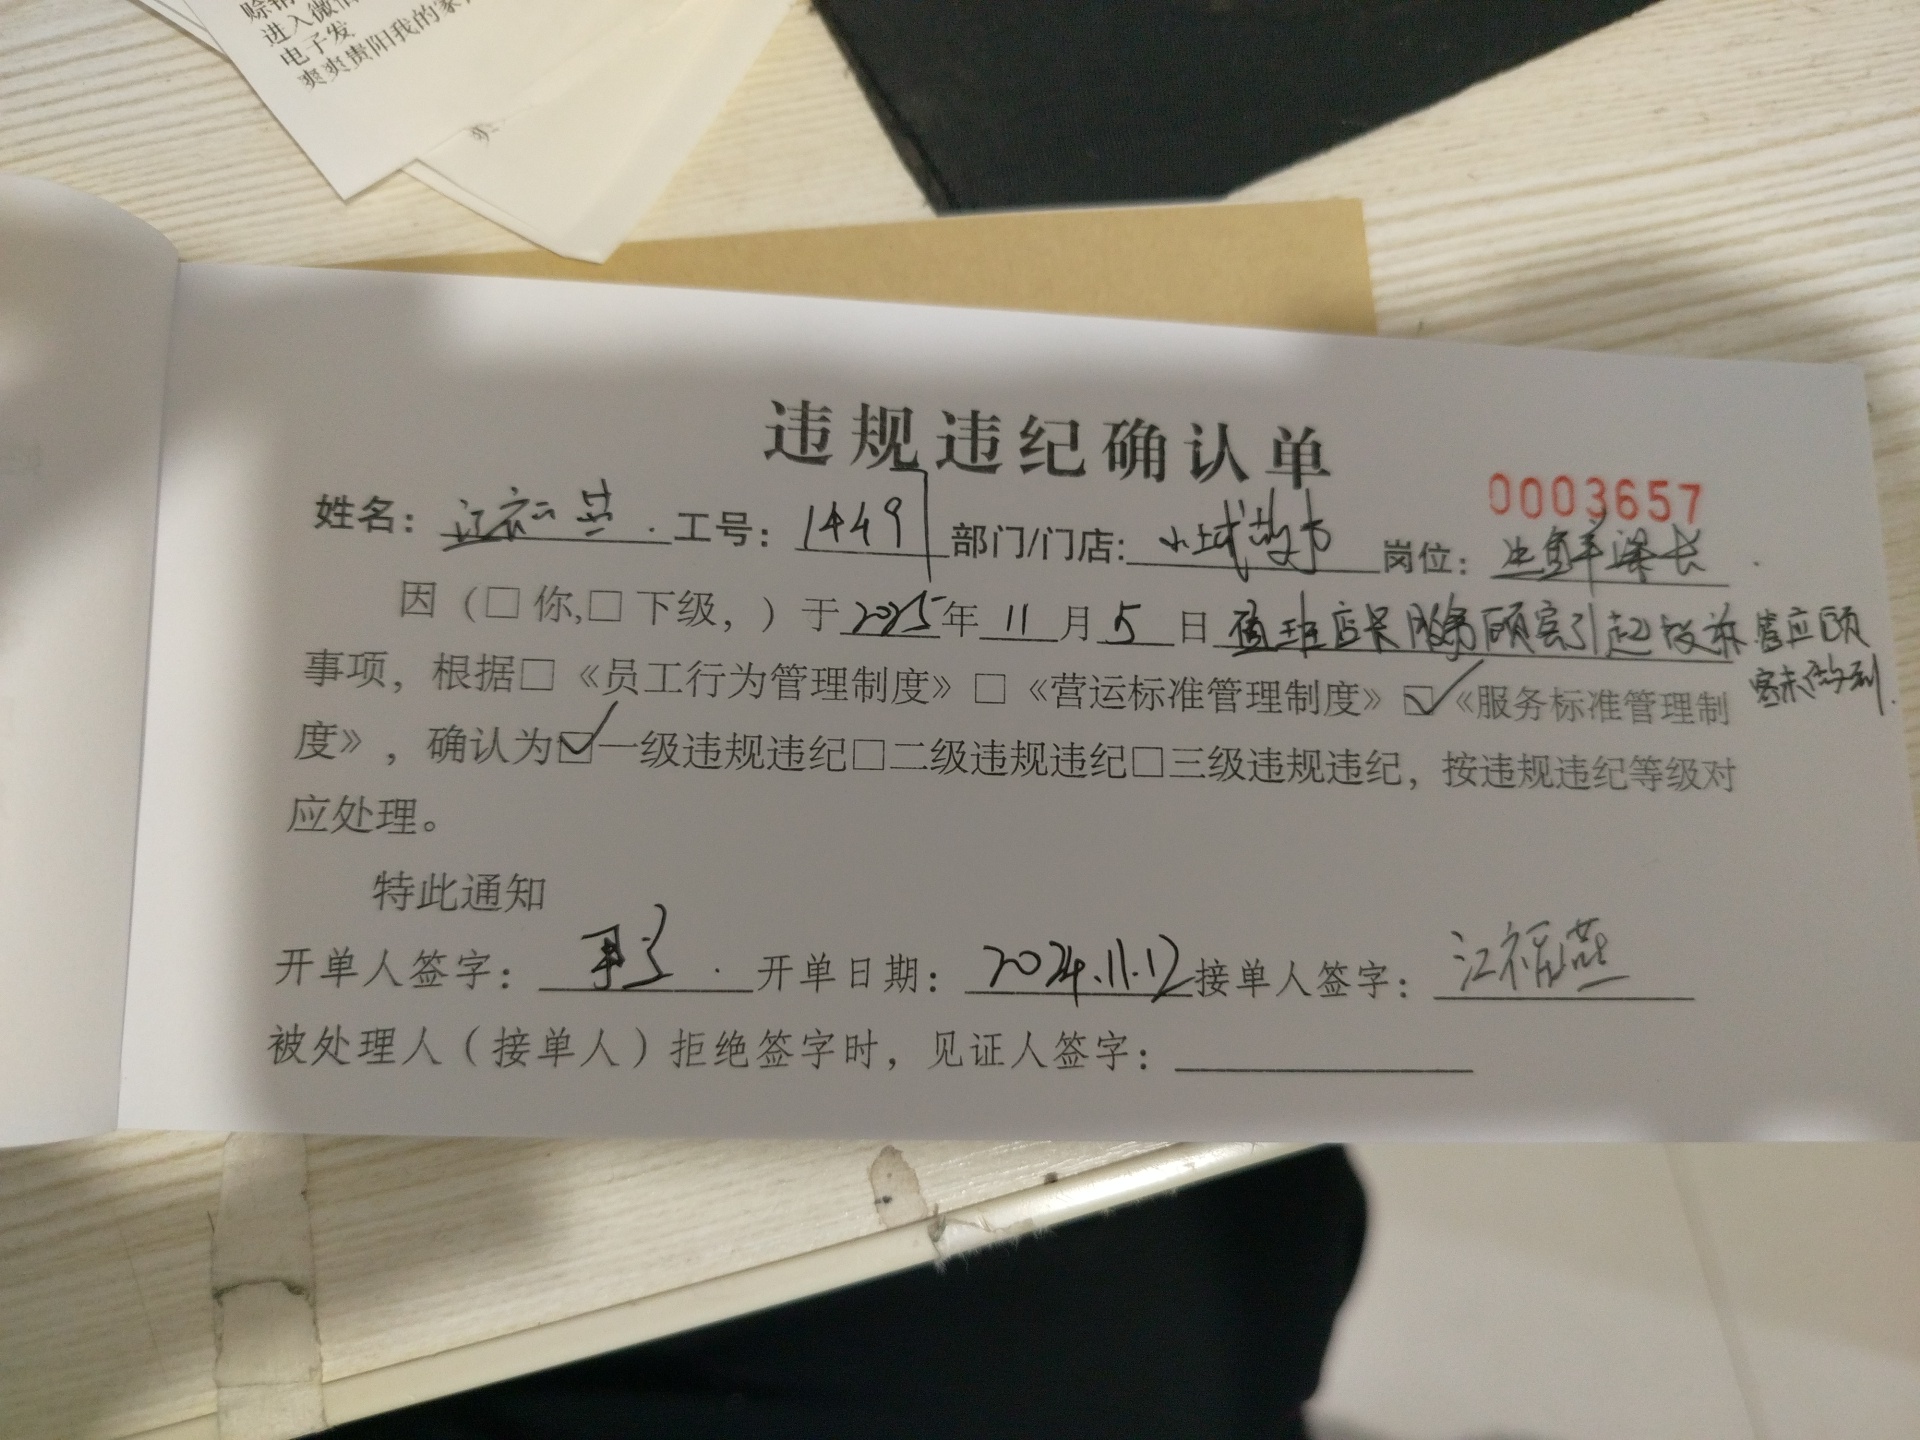 进入微信
电子发
爽爽贵阳我的家
违规违纪确认单
0003657
姓名：江 工号：1449 部门/门店：小城故 岗位：生鲜课长
因（□你,□下级，）于2025年11月5日值班店长服务顾客引起投诉 答应顾
客未做到.
事项，根据□《员工行为管理制度》□《营运标准管理制度》☑《服务标准管理制
度》，确认为☑一级违规违纪□二级违规违纪□三级违规违纪，按违规违纪等级对
应处理。
特此通知
开单人签字： 开单日期：2024.11.12 接单人签字：江福燕
被处理人（接单人）拒绝签字时，见证人签字：